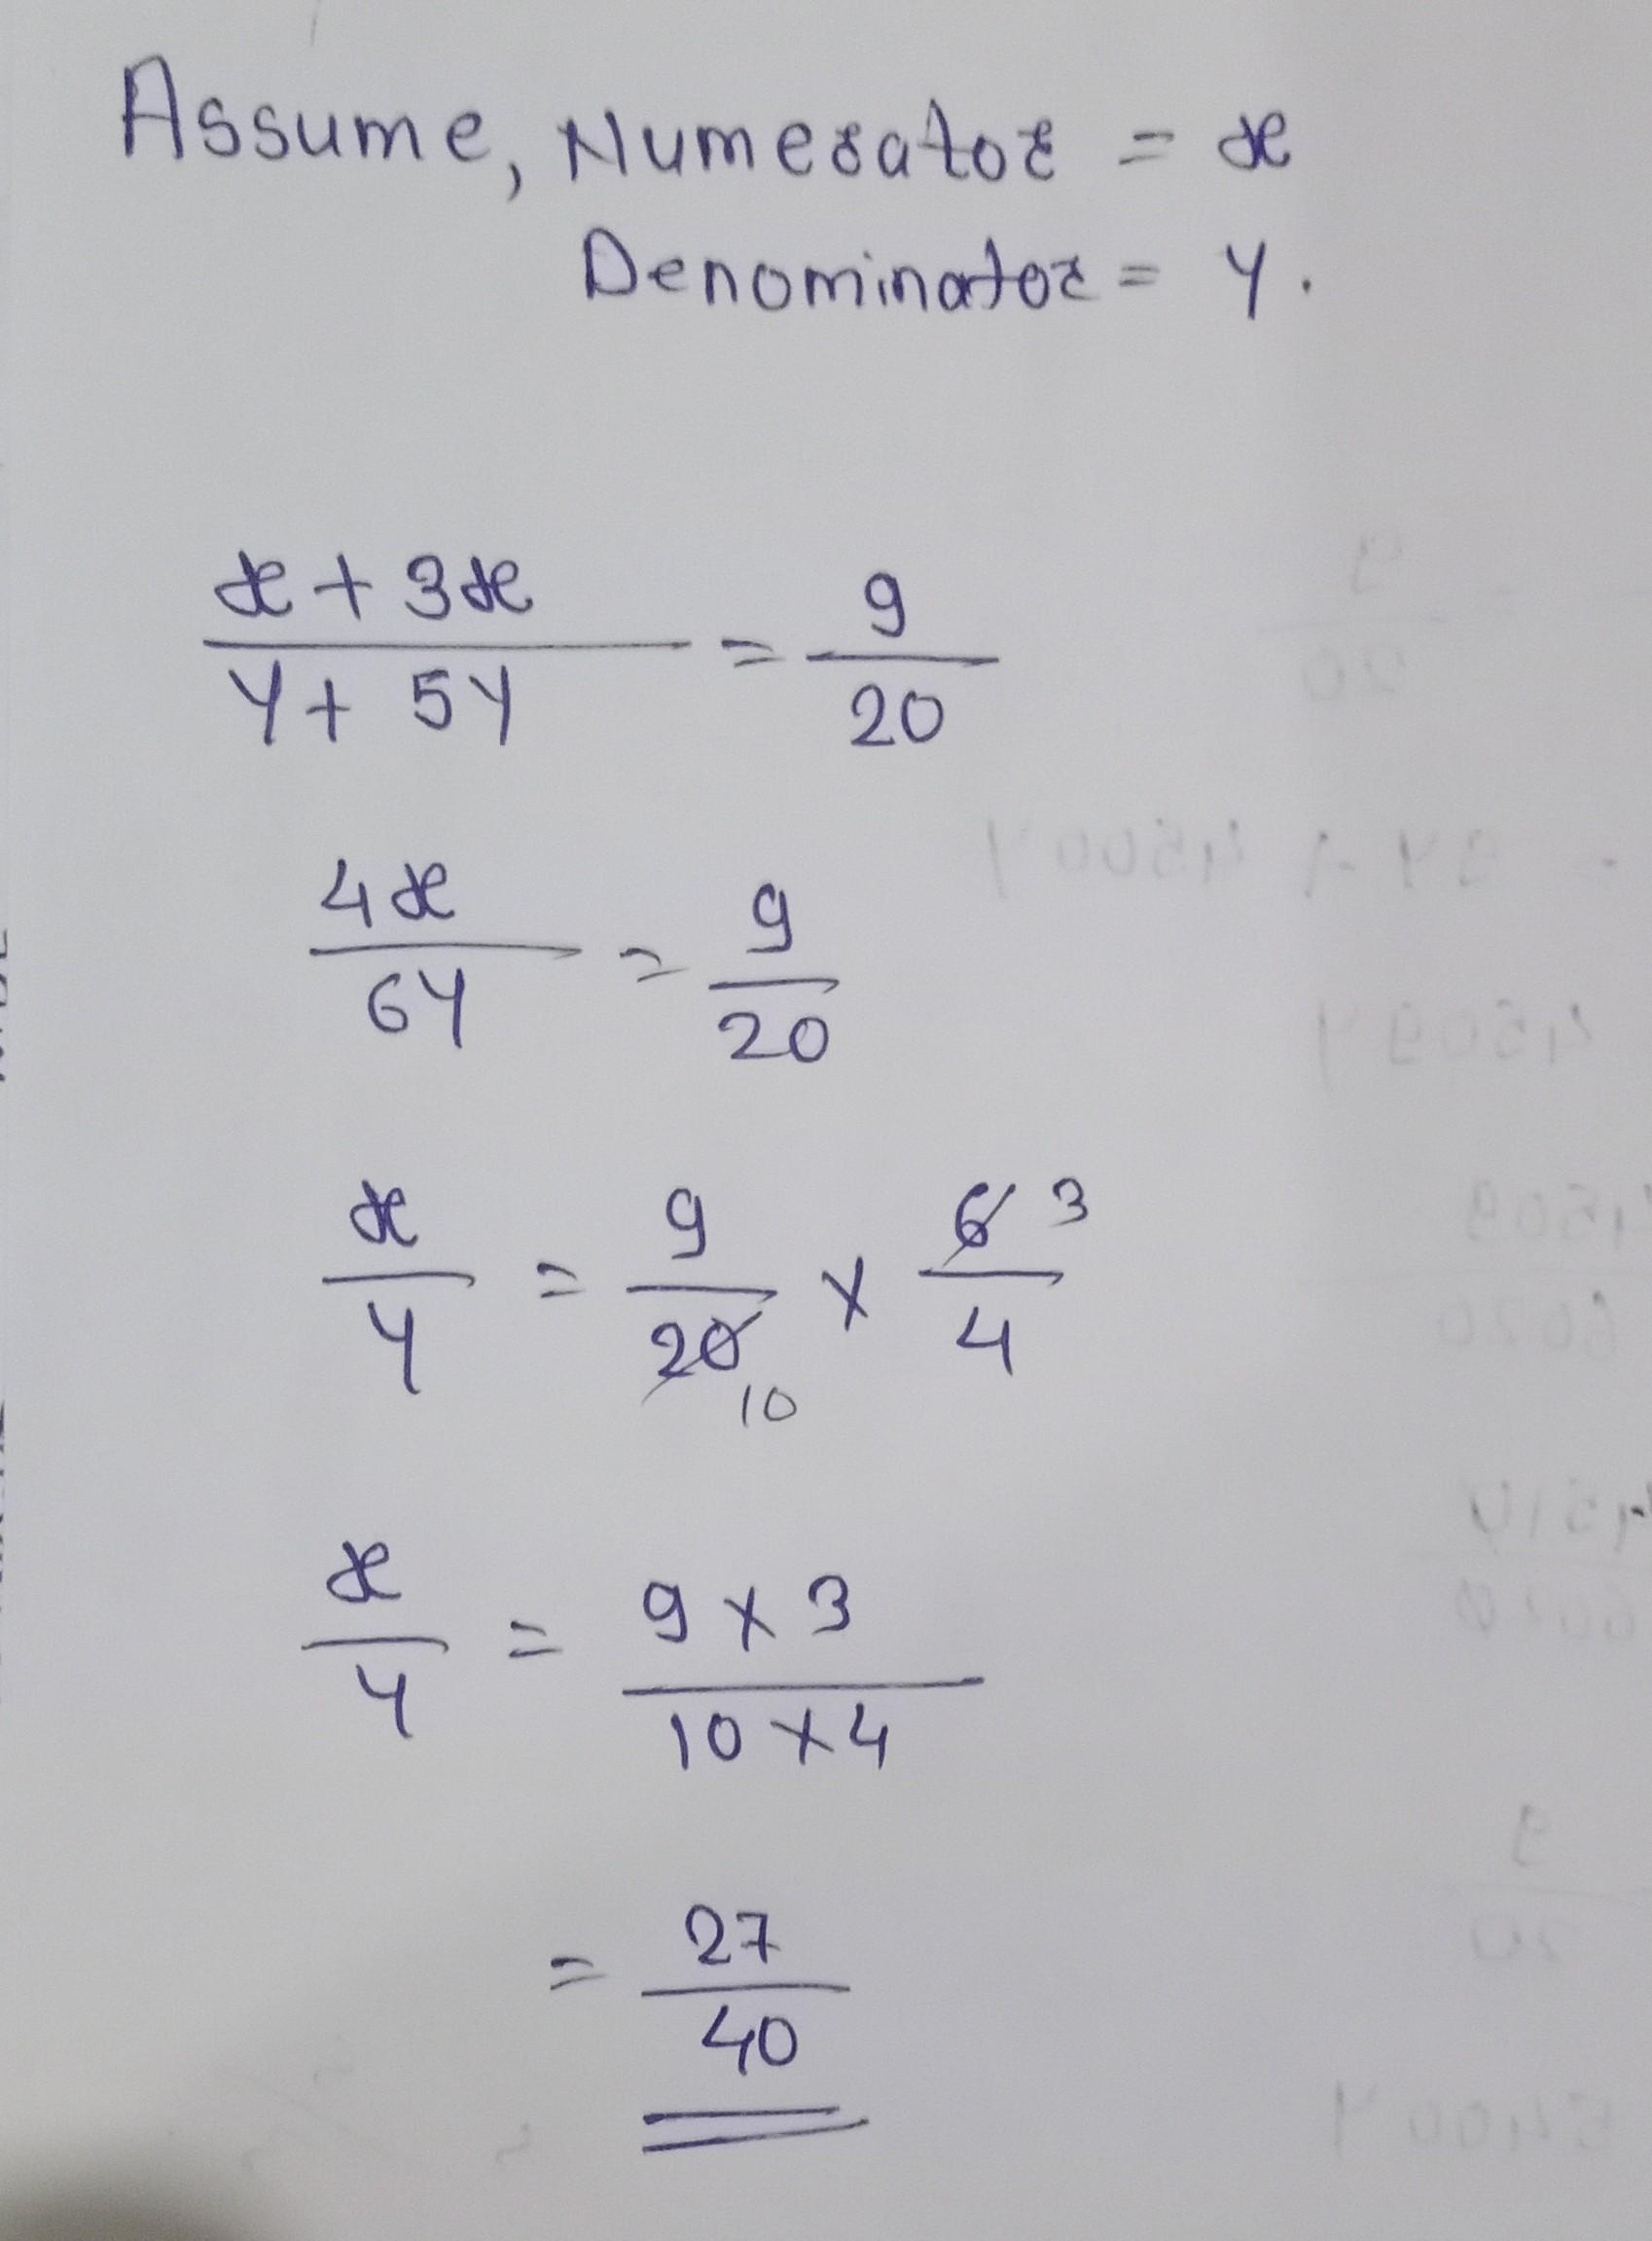 Assume, Numerator = x
Denominator = y.
x + 3x / y + 5y = 9 / 20
4x / 6y = 9 / 20
x / y = 9 / 20 10 × 6 3 / 4
x / y = 9 × 3 / 10 × 4
= 27 / 40